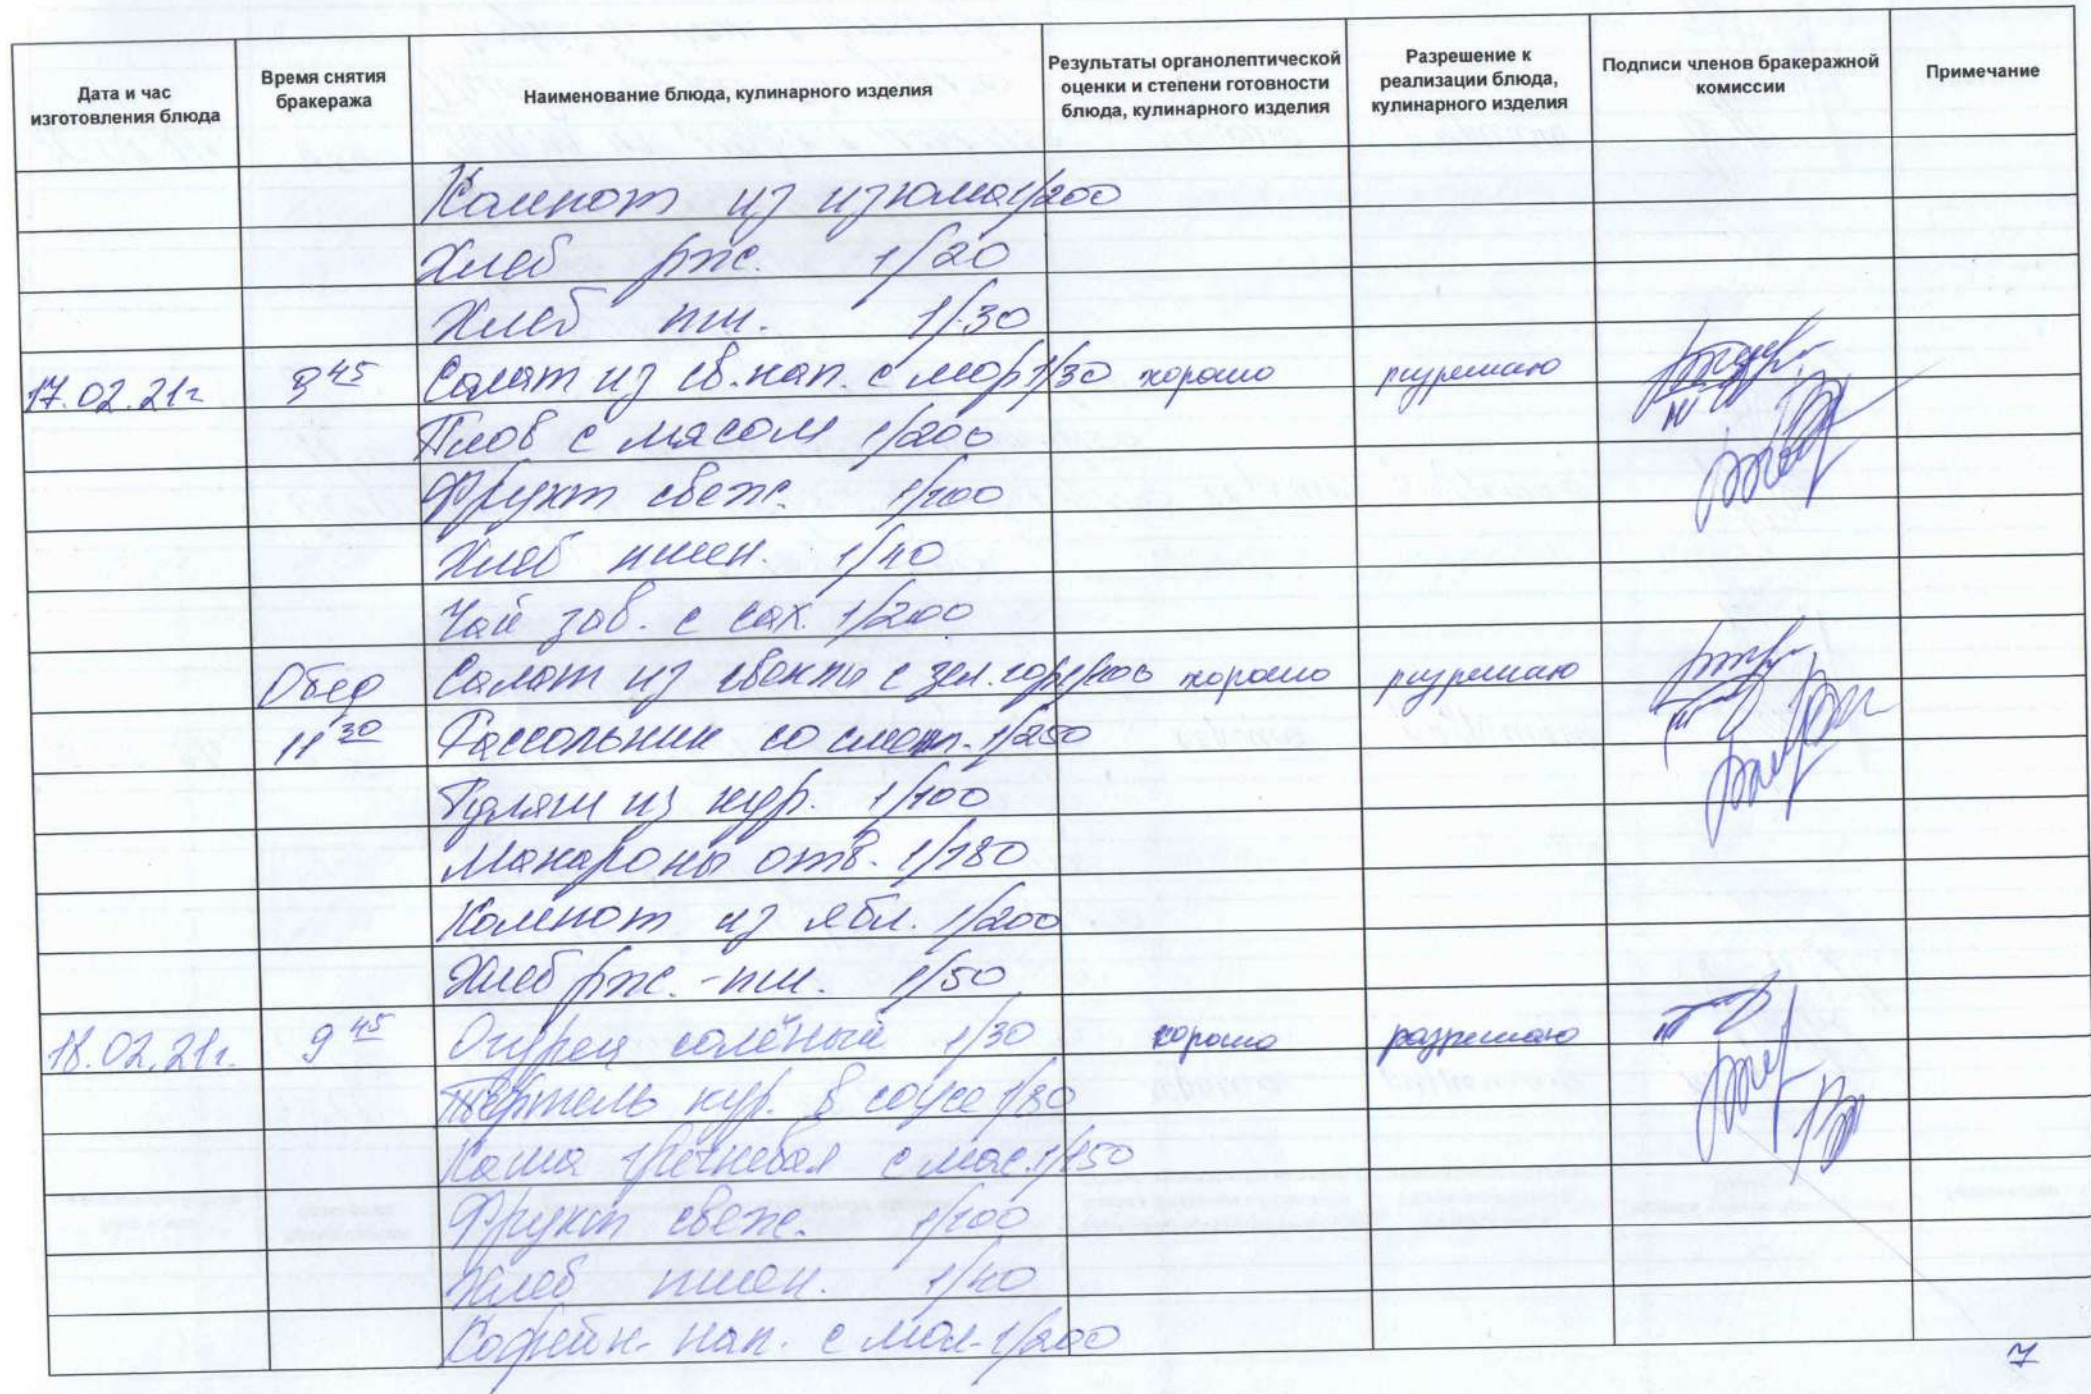 Дата и час изготовления блюда
Время снятия бракеража
Наименование блюда, кулинарного изделия
Результаты органолептической оценки и степени готовности блюда, кулинарного изделия
Разрешение к реализации блюда, кулинарного изделия
Подписи членов бракеражной комиссии
Примечание
Компот из изюма 1/200
Хлеб рж. 1/20
Хлеб пш. 1/30
17.02.21г 9 45 Салат из св. кап. с мор 1/30 хорошо разрешаю
Плов с мясом 1/200
Фрукт свеж. 1/100
Хлеб пшен. 1/40
Чай зав. с сах. 1/200
Обед Салат из свеклы с зел. гор 1/100 хорошо разрешаю
11 30 Рассольник со смет. 1/250
Гуляш из кур. 1/100
Макароны отв. 1/180
Компот из ябл. 1/200
Хлеб рж.-пш. 1/50
18.02.21г. 9 45 Огурец солёный 1/30 хорошо разрешаю
кур. в соусе 1/80
Каша гречневая с мас. 1/150
Фрукт свеж. 1/100
Хлеб пшен. 1/40
Кофейн. нап. с мол. 1/200
7